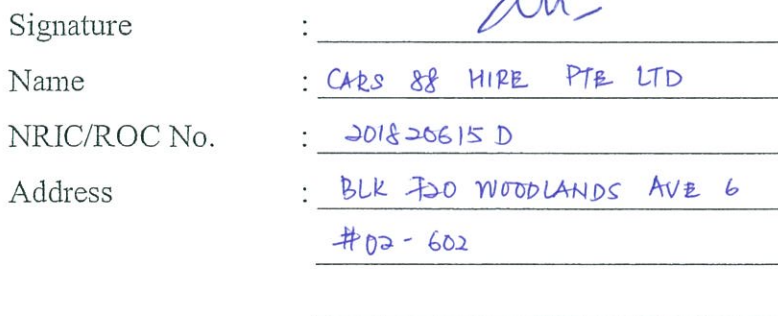 Signature :
Name : CARS 88 HIRE PTE LTD
NRIC/ROC No. : 201820615 D
Address : BLK 720 WOODLANDS AVE 6
#02-602